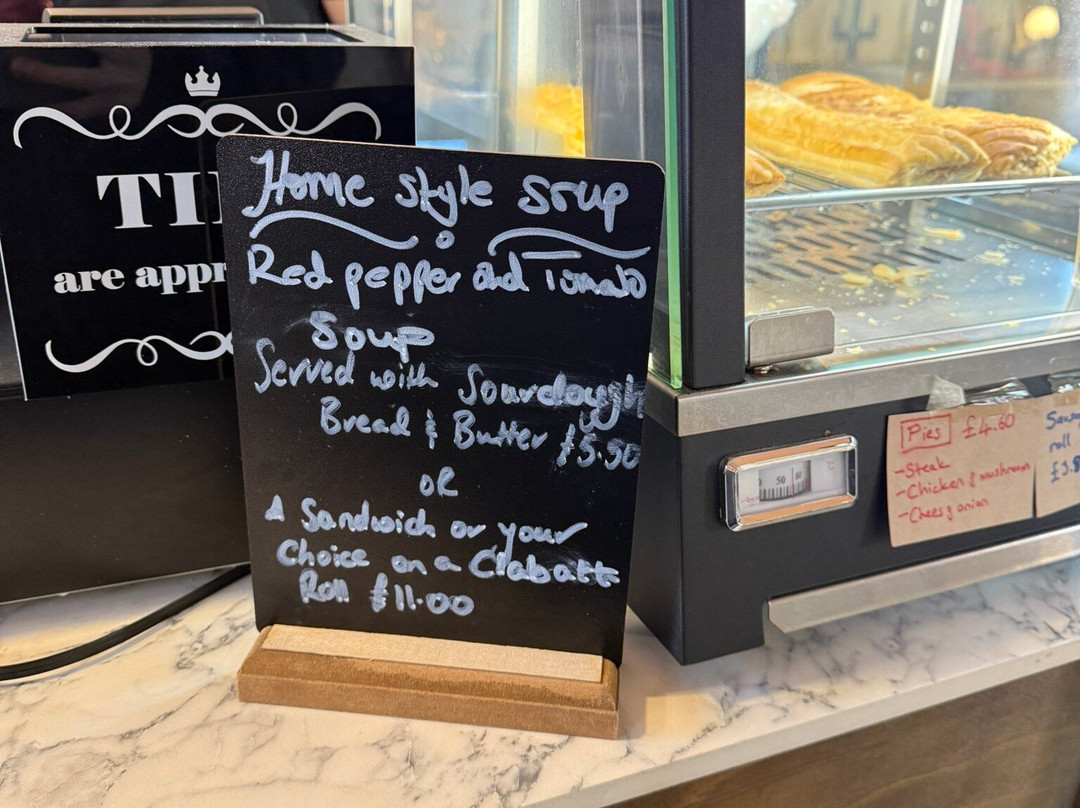 TI
are appr
Home style soup
Red pepper and Tomato
Soup
Served with Sourdough
Bread & Butter £5.50
OR
A Sandwich or your
Choice on a Ciabatta
Roll £11.00
Pies £4.60
-Steak
-Chicken & mushroom
-Cheesy onion
roll
50